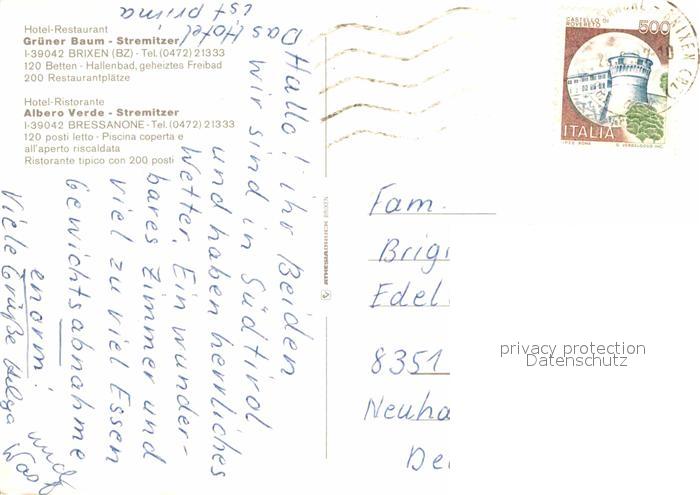 Hotel-Restaurant
Grüner Baum - Stremitzer
I-39042 BRIXEN (BZ) - Tel. (0472) 21333
120 Betten - Hallenbad, geheiztes Freibad
200 Restaurantplätze
Hotel-Ristorante
Albero Verde - Stremitzer
I-39042 BRESSANONE - Tel. (0472) 21333
120 posti letto - Piscina coperta e
all'aperto riscaldata
Ristorante tipico con 200 posti
Hallo! ihr Beiden
wir sind in Südtirol
und haben herrliches
Wetter. Ein wunder-
bares Zimmer und
viel zu viel Essen
Gewichtsabnahme
enorm!
Viele Grüße Helga und
Das Hotel
ist prima
ATHESIADRUCK BRIXEN
CASTELLO DI
ROVERETO
500
ITALIA
Fam.
Brigi
Edel
8351
Neuha
De
privacy protection
Datenschutz